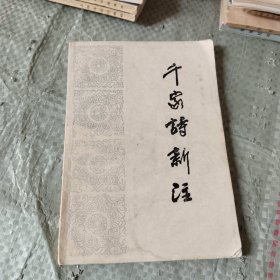 千家詩新注